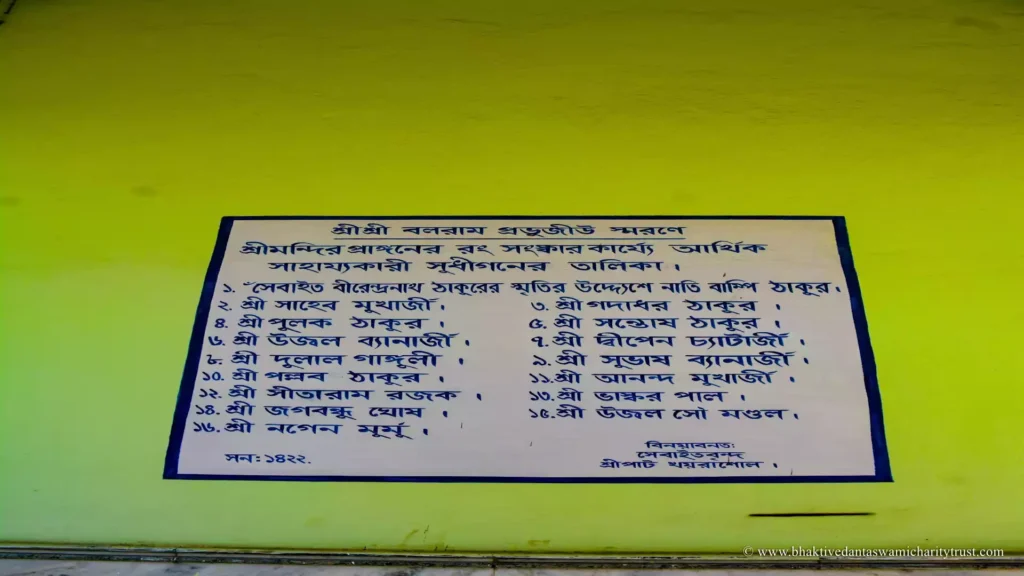 শ্রীশ্রী বলরাম প্রভুজীউ স্মরণে
শ্রীমন্দির প্রাঙ্গনের রং সংস্কার কার্য্যে আর্থিক
সাহায্যকারী সুধীগনের তালিকা।
১. সেবাইত ধীরেন্দ্রনাথ ঠাকুরের স্মৃতির উদ্দ্যেশে নাতি বাপ্পি ঠাকুর।
২. শ্রী সাহেব মুখার্জী। ৩. শ্রী গদাধর ঠাকুর।
৪. শ্রী পুলক ঠাকুর। ৫. শ্রী সন্তোষ ঠাকুর।
৬. শ্রী উজ্বল ব্যানার্জী। ৭. শ্রী দ্বীপেন চ্যাটার্জী।
৮. শ্রী দুলাল গাঙ্গুলী। ৯. শ্রী সুভাষ ব্যানার্জী।
১০. শ্রী পল্লব ঠাকুর। ১১. শ্রী আনন্দ মুখার্জী।
১২. শ্রী সীতারাম রজক। ১৩. শ্রী ভাস্কর পাল।
১৪. শ্রী জগবন্ধু ঘোষ। ১৫. শ্রী উজ্বল সৌ মণ্ডল।
১৬. শ্রী নগেন মূর্মূ।
বিনয়াবনতঃ
সন: ১৪২২. সেবাইতবৃন্দ
শ্রীপাট খয়রাশোল।
© www.bhaktivedantaswamicharitytrust.com